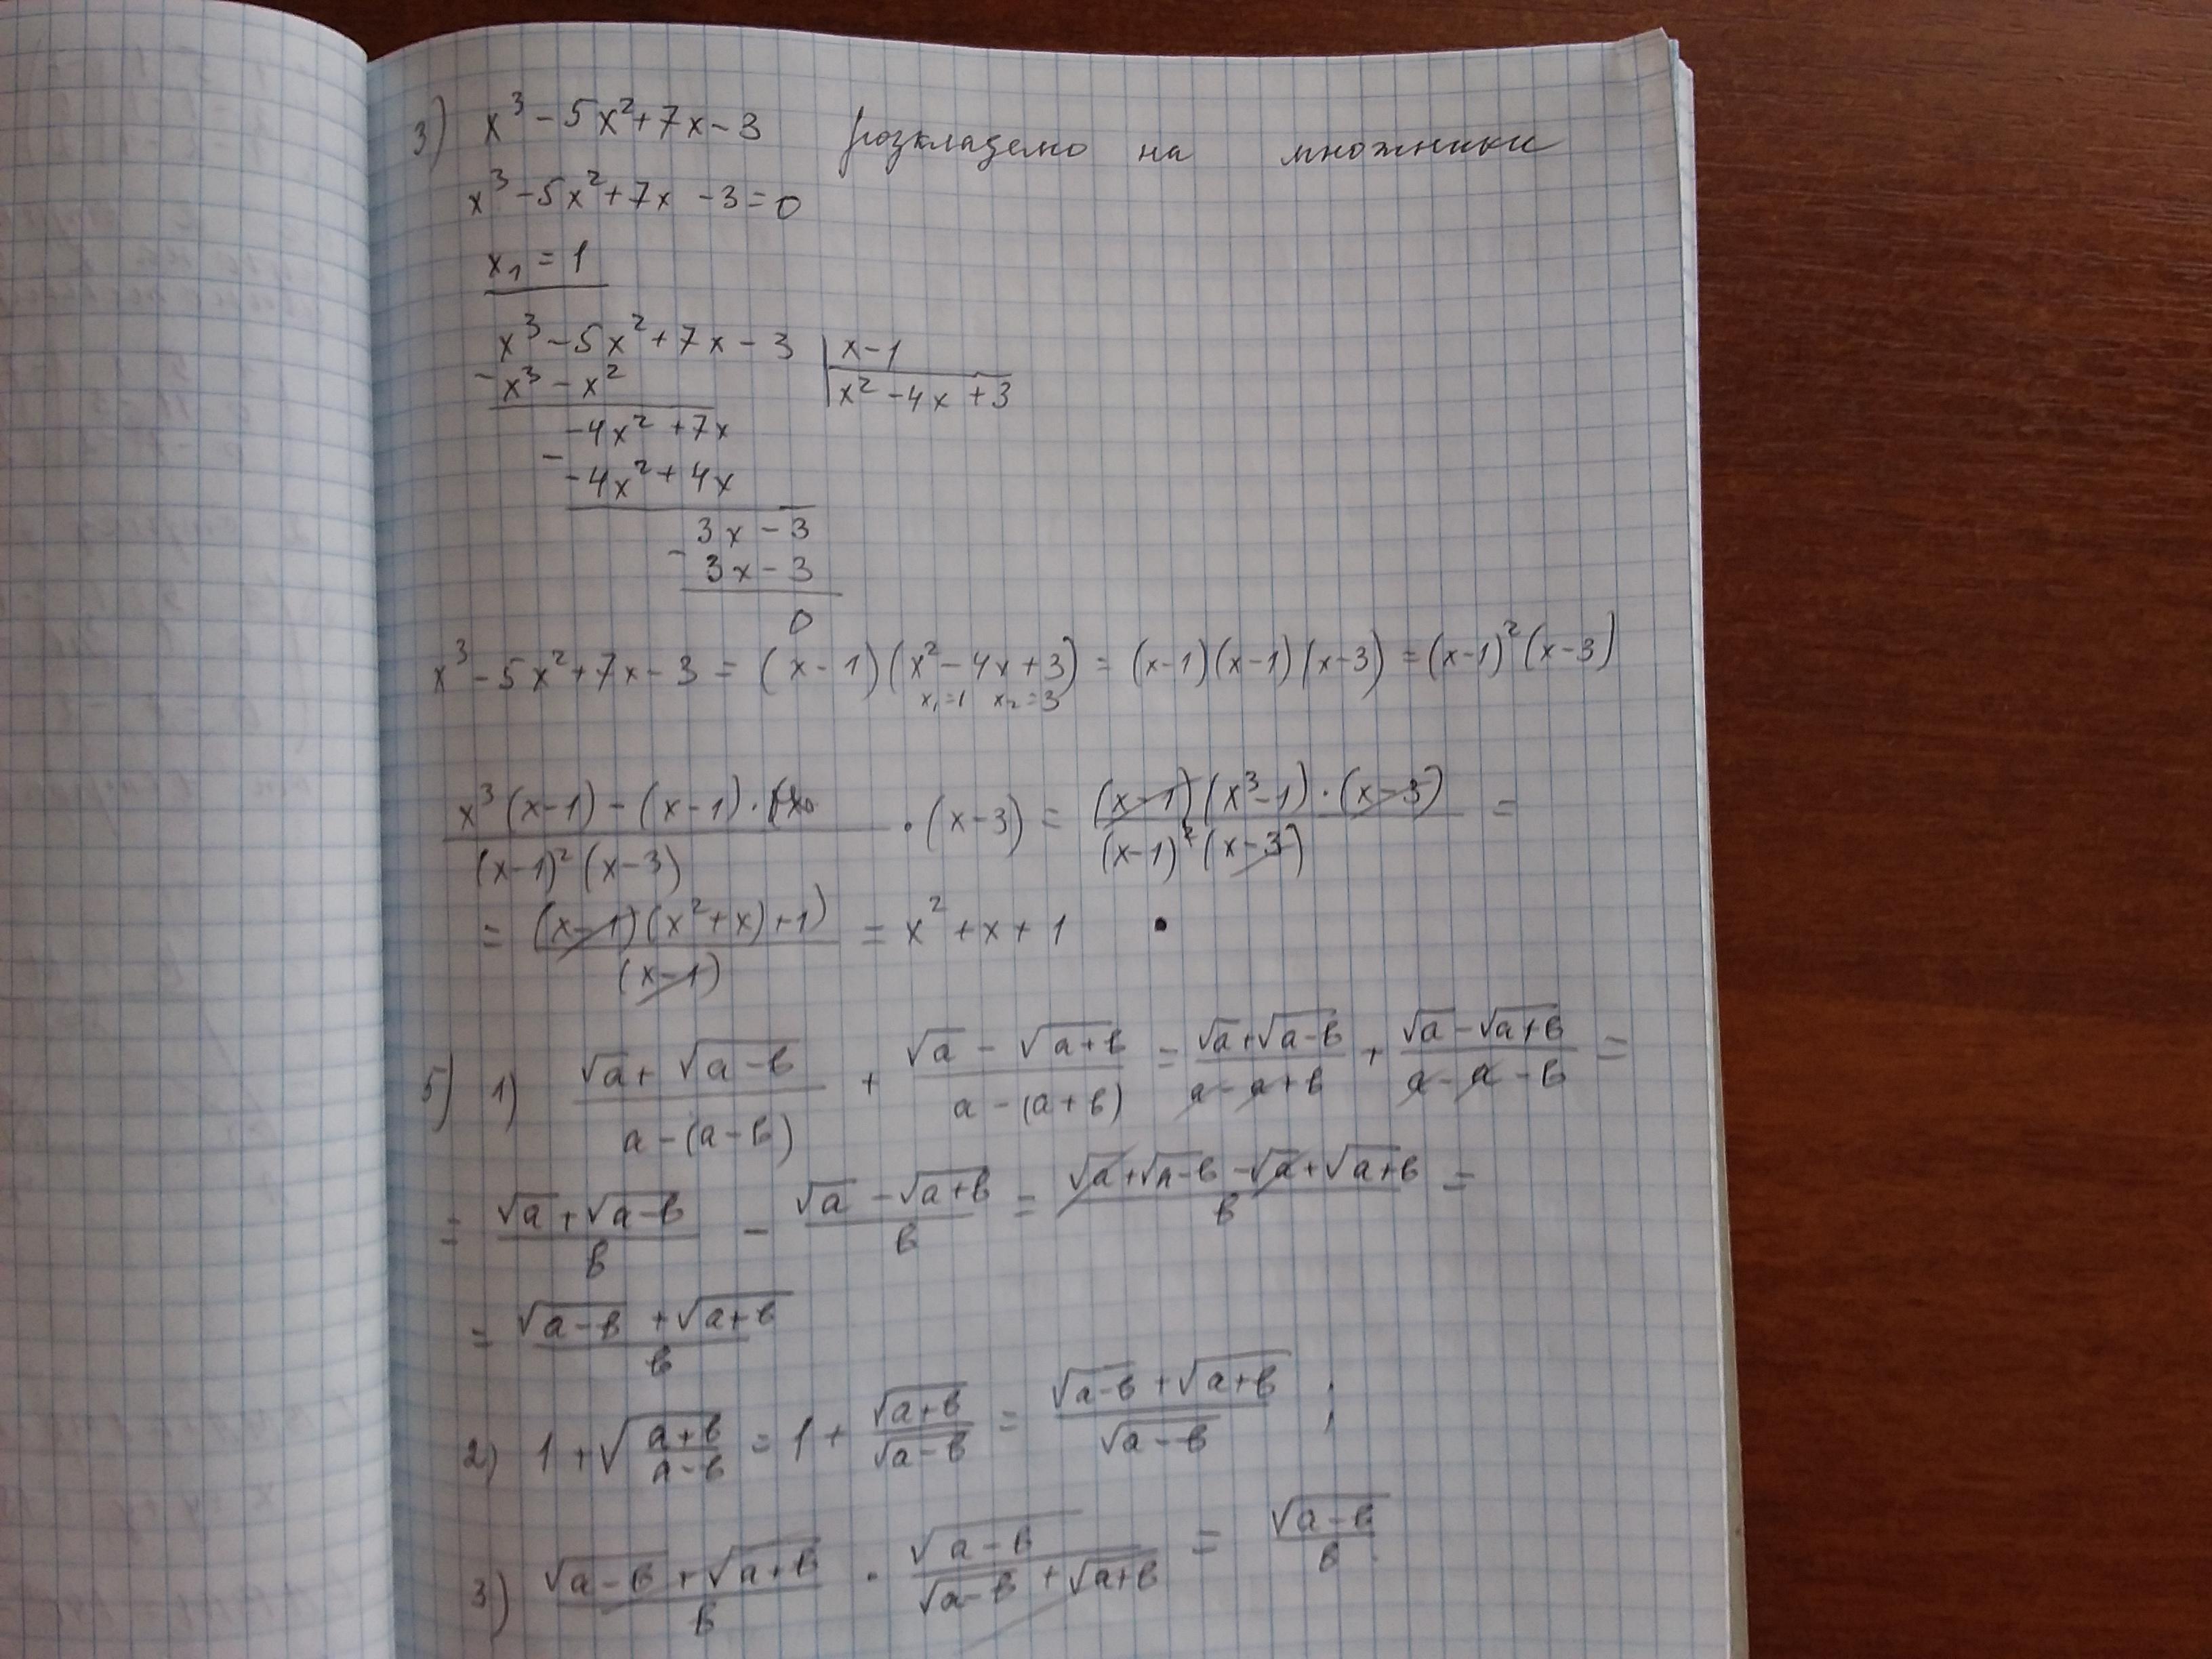 3) x³ - 5x² + 7x - 3 розкладемо на множники
x³ - 5x² + 7x - 3 = 0
x₁ = 1
x³ - 5x² + 7x - 3 | x - 1
- x³ - x² | x² - 4x + 3
-4x² + 7x
- -4x² + 4x
3x - 3
- 3x - 3
0
x³ - 5x² + 7x - 3 = (x - 1)(x² - 4x + 3) = (x-1)(x-1)(x-3) = (x-1)²(x-3)
x₁=1 x₂=3
(x³(x-1) - (x-1)·) / ((x-1)²(x-3)) · (x-3) = ((x-1)(x³-1)·(x-3)) / ((x-1)²(x-3)) =
= ((x-1)(x²+x)+1) / (x-1) = x² + x + 1
5) 1) (√a + √(a-b)) / (a-(a-b)) + (√a - √(a+b)) / (a-(a+b)) = (√a+√(a-b)) / (a-a+b) + (√a-√(a+b)) / (a-a-b) =
= (√a+√(a-b)) / b - (√a-√(a+b)) / b = (√a+√(a-b)-√a+√(a+b)) / b =
= (√(a-b) + √(a+b)) / b
2) 1 + √((a+b)/(a-b)) = 1 + √(a+b)/√(a-b) = (√(a-b) + √(a+b)) / √(a-b) ;
3) (√(a-b) + √(a+b)) / b · √(a-b) / (√(a-b) + √(a+b)) = √(a-b) / b